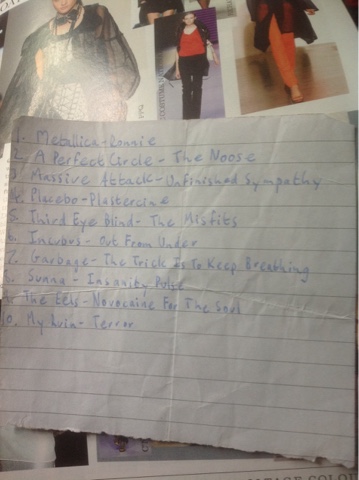 1. Metallica-Ronnie
2. A Perfect Circle - The Noose
3. Massive Attack-Unfinished Sympathy
4. Placebo-Plastercine
5. Third Eye Blind- The Misfits
6. Incubus- Out From Under
7. Garbage- The Trick Is To Keep Breathing
8. Sunna - Insanity Pulse
9. The Eels-Novocaine For The Soul
10. My Ruin- Terror